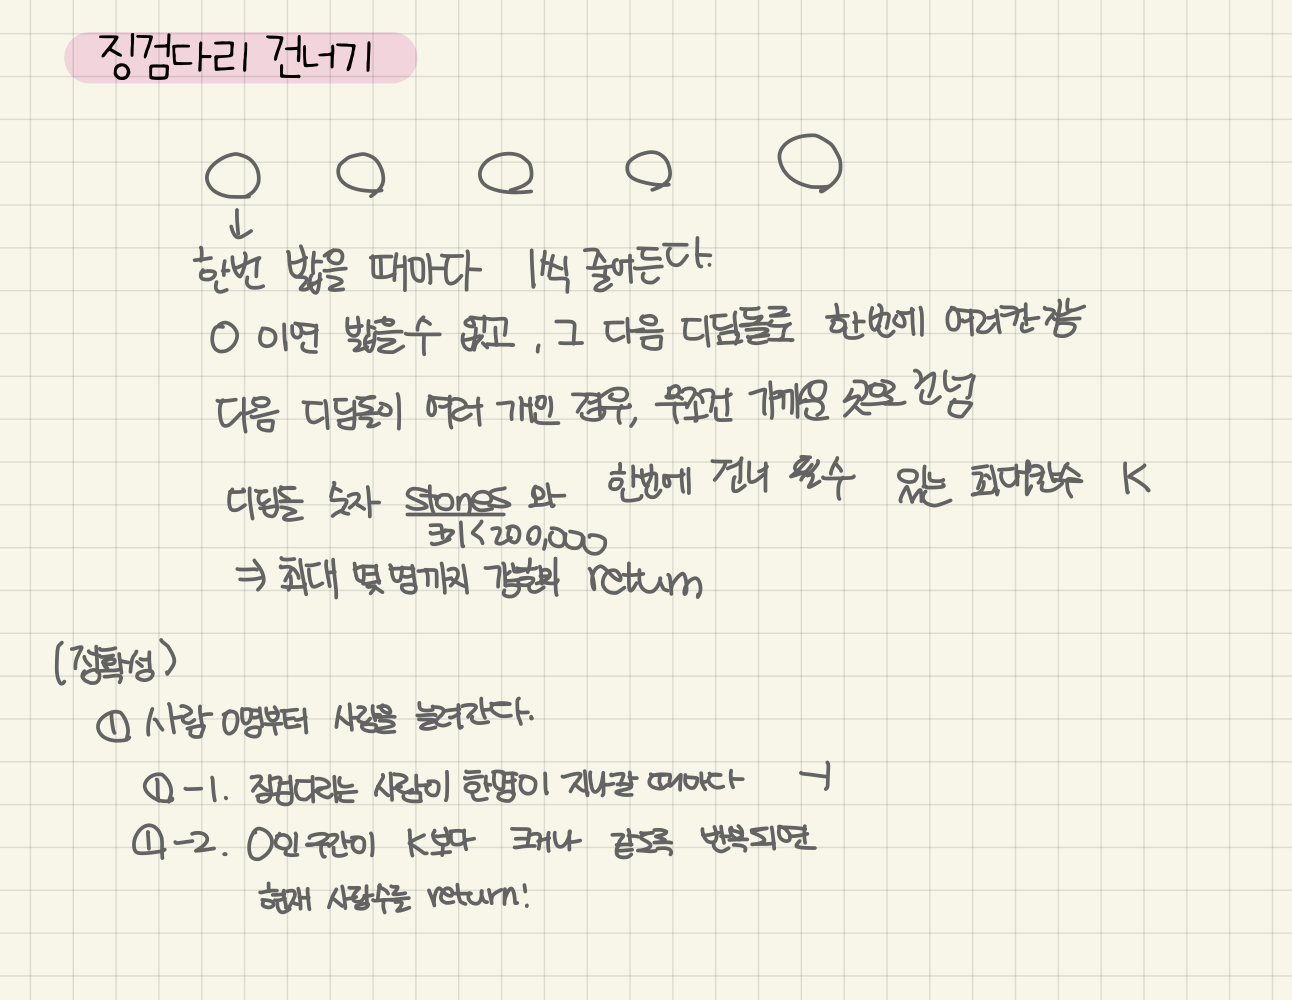 징검다리 건너기
한번 밟을 때마다 1씩 줄어든다.
0 이면 밟을수 없고, 그 다음 디딤돌로 한번에 여러칸 가능
다음 디딤돌이 여러 개인 경우, 무조건 가까운 곳으로 건넘
디딤돌 숫자 stones 와 한번에 건너 뛸수 있는 최대칸수 K
크기<200,000
⇒ 최대 몇 명까지 return
(정확성)
① 사람 0명부터 사람을 늘려간다.
①-1. 징검다리는 사람이 한명이 지나갈 때마다 -1
①-2. 0인 구간이 K보다 크거나 같도록 반복되면
현재 사람수를 return!